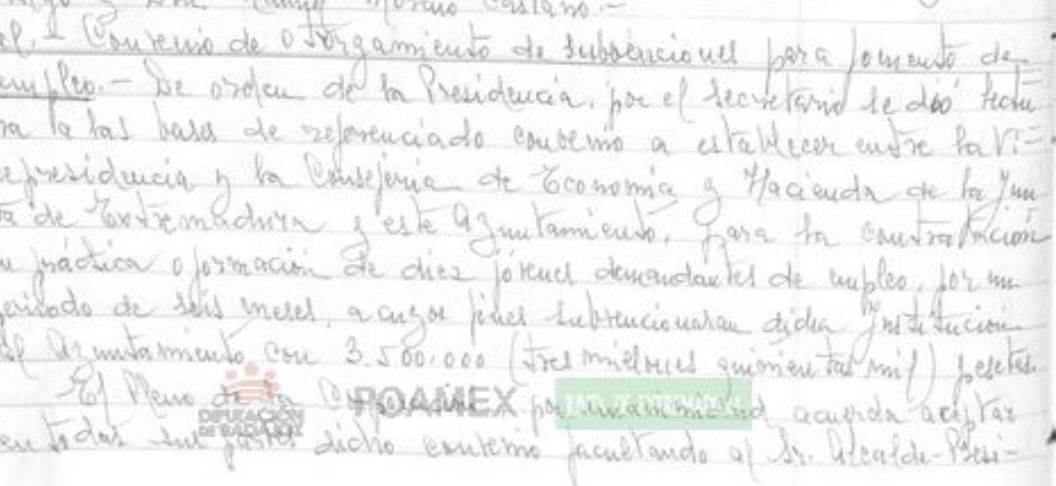 Moreno Castaño.-
Convenio de otorgamiento de subvenciones para fomento de
empleo.- De orden de la Presidencia, por el Secretario se dió lectu
ra a las bases de referenciado convenio a establecer entre la Vi-
cepresidencia y la Consejeria de Economía y Hacienda de la Jun
ta de Extremadura y este Ayuntamiento, para la contratación
en práctica o formación de diez jóvenes demandantes de empleo, por un
periodo de seis meses, a cuyos fines subvencionaran dicha Institución
al Ayuntamiento con 3.500.000 (tres millones quinientas mil) pesetas.
El Pleno de la por unanimidad acuerda aceptar
DIPUTACIÓN DE BADAJOZ ROAMEX JUNTA DE EXTREMADURA
en todas sus partes dicho convenio facultando al Sr. Alcalde-Presi-